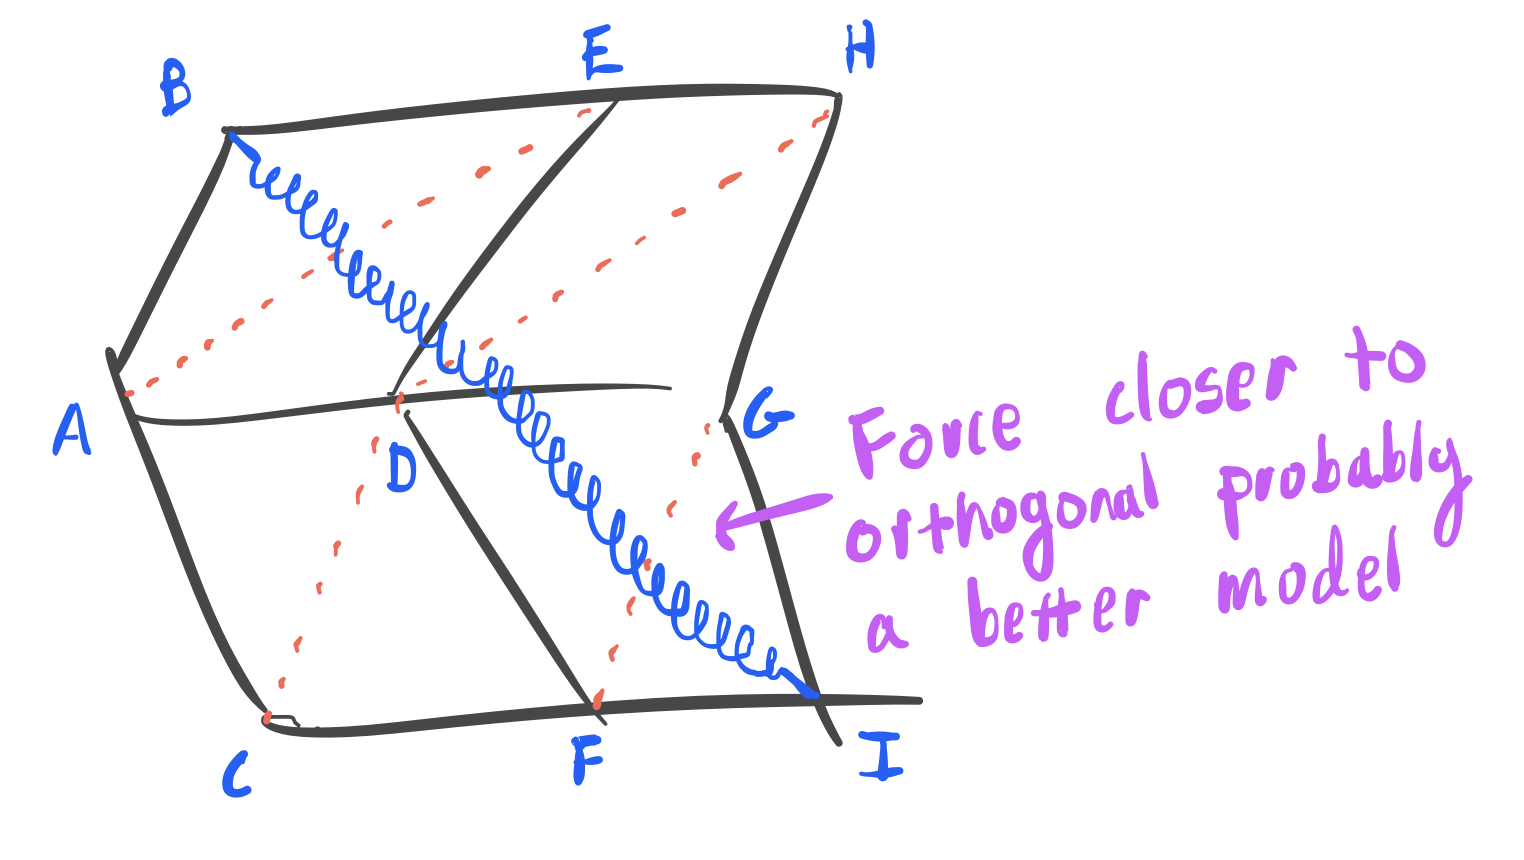 B
E
H
A
D
G
C
F
I
Force closer to
orthogonal probably
a better model